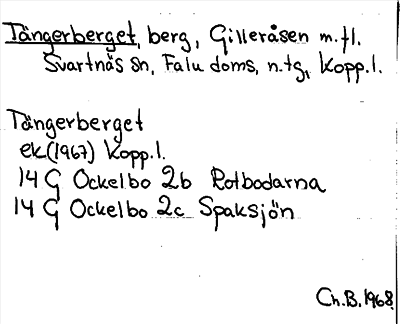 Tängerberget, berg, Gilleråsen m.fl.
Svartnäs sn, Falu doms. n.tg, Kopp.l.
Tängerberget
ek(1967) Kopp.l.
14 G Ockelbo 2b Rotbodarna
14 G Ockelbo 2c Spaksjön
Ch.B.1968.